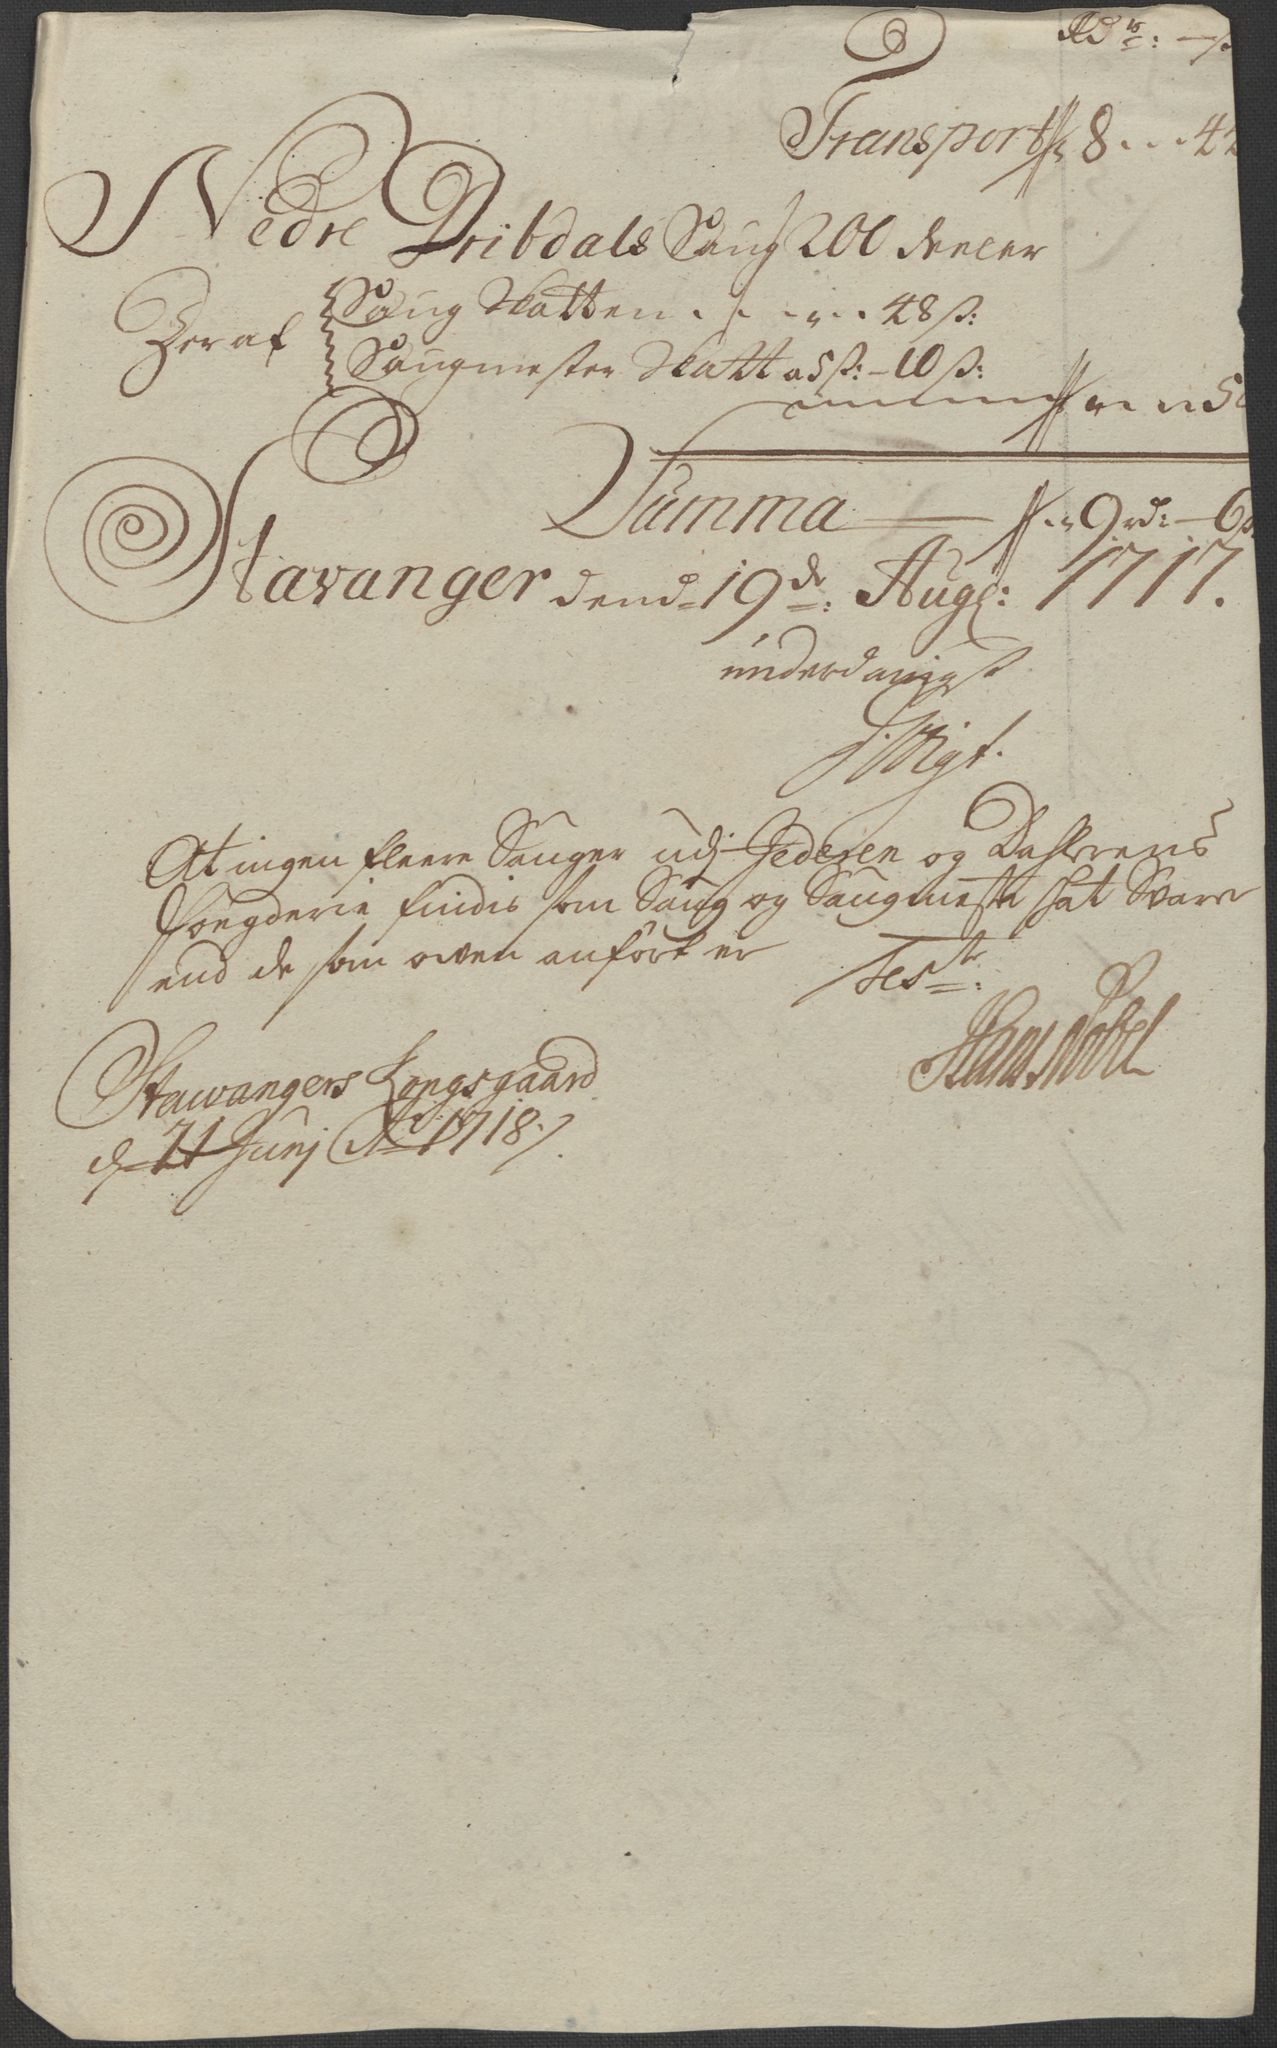 Rd: ß
Transport 8 . . . 42
Nedre Dribdals Saug 200 deeler
Saug Skatten . . . . . 48 ß:
Deraf
Saugmester Skatt a 5 ß: – 10 ß:
58
Summa 9 rd: – 6 ß
Stavanger dend 19de: Aug: 1717.
underdanigst
At ingen fleere Sauger udj Jederen og Dahlernes
Fougderie findis som Saug og Saugmester skat Svarer
end de som oven anført er Test:
Hans Nobel
Stawangers Kongsgaard
d 21 Junj Ao 1718